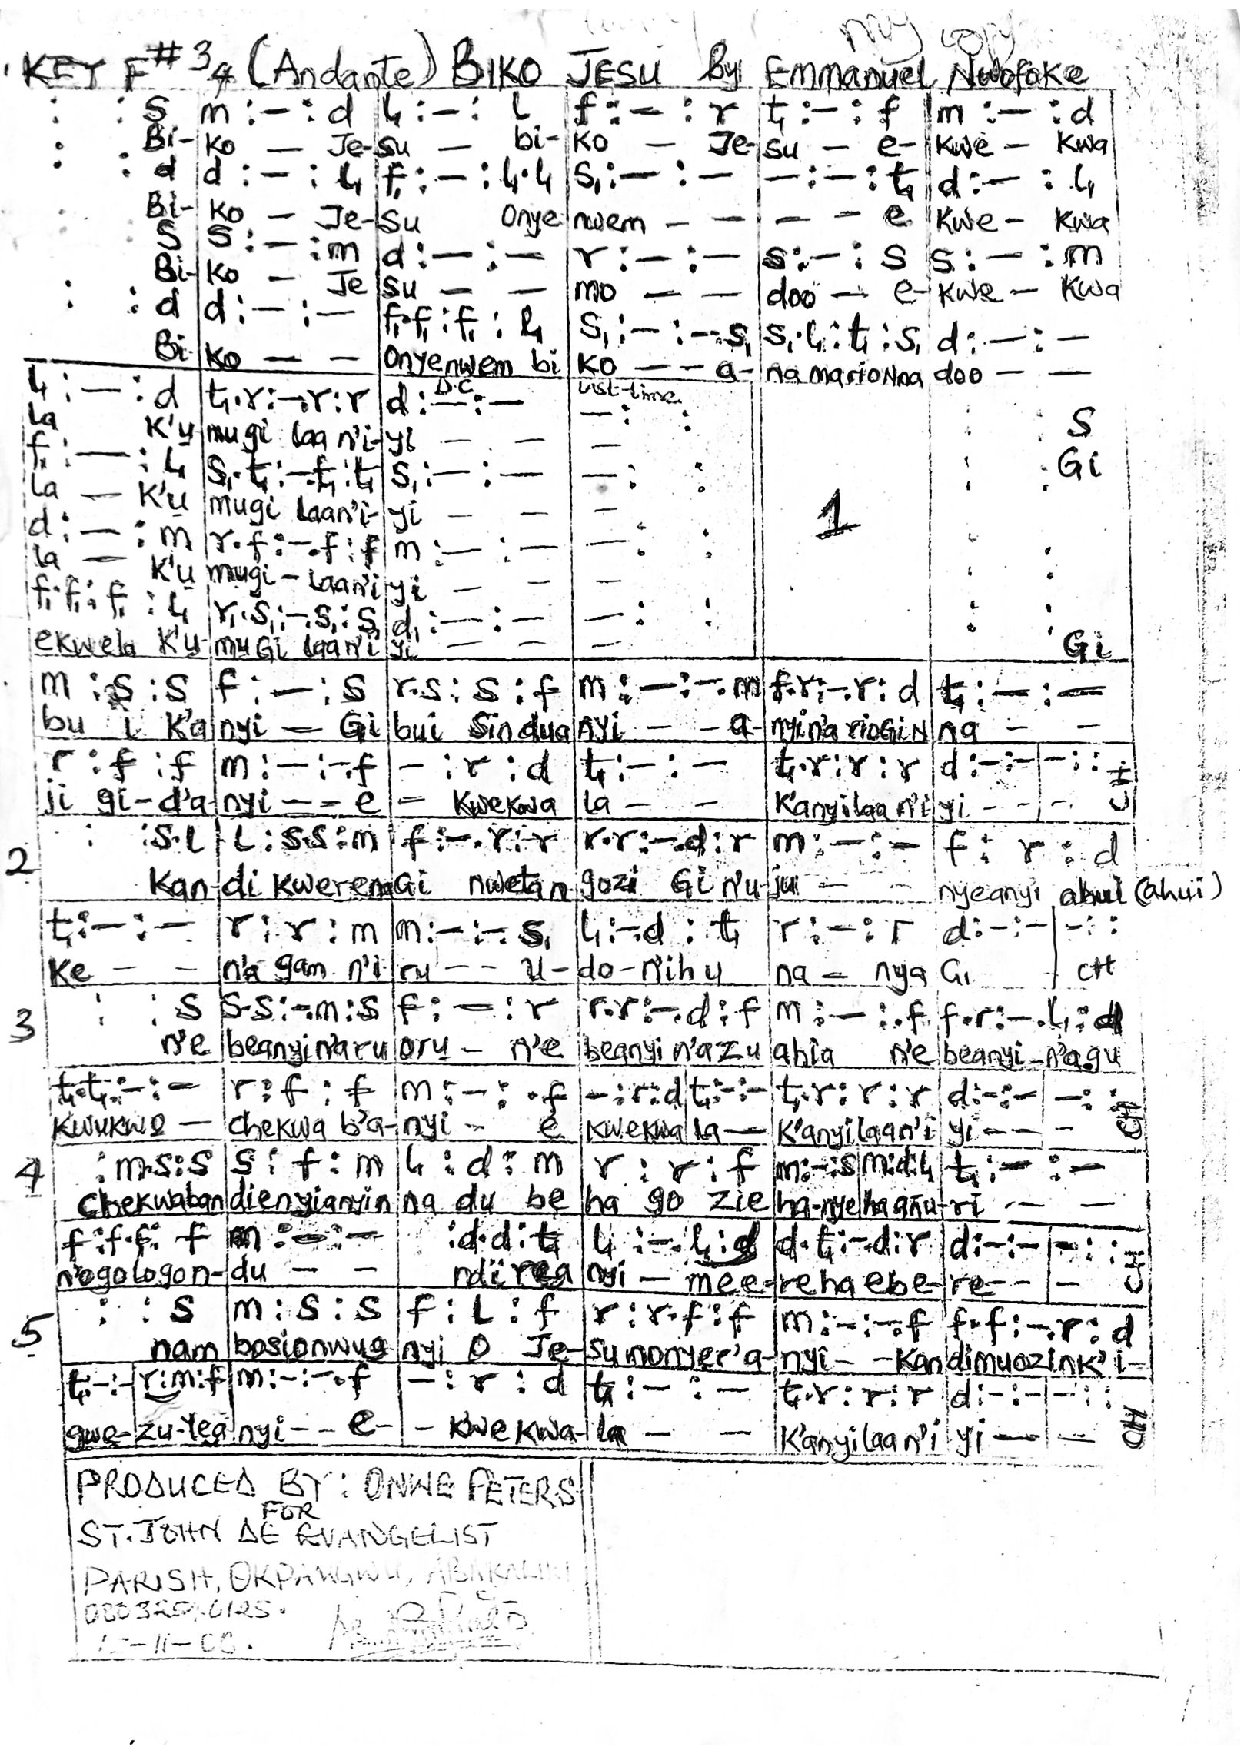 my copy
KEY F# 3/4 (Andante) BIKO JESU By Emmanuel Nwofoke
: : S | m : — : d | l₁ : — : l | f : — : r | t₁ : — : f | m : — : d
Bi- | Ko — Je- | su — bi- | Ko — Je- | su — e- | Kwe — Kwa
: : d | d : — : l₁ | f₁ : — : l₁.l₁ | s₁ : — : — | — : — : t₁ | d : — : l₁
Bi- | Ko — Je- | su Onye | nwem — — | — — e | Kwe — Kwa
: : S | S : — : m | d : — : — | r : — : — | s : — : s | s : — : m
Bi- | Ko — Je | su — — | mo — — | doo — e- | Kwe — Kwa
: : d | d : — : — | f₁.f₁ : f₁ : l₁ | s₁ : — : —.s₁ | s₁.l₁ : t₁ : s₁ | d : — : —
Bi | Ko — — | Onyenwem bi | Ko — — a- | na marioNna | doo — —
l₁ : — : d | t₁.r : —.r : r | d : — : — D.C | Last-time — : : | : : S
La K'ụ | mugi laa n'i- | yi — — | — | Gi
f₁ : — : l₁ | s₁.t₁ : —.t₁ : t₁ | s₁ : — : — | — : :
La — K'ụ | mugi laan'i- | yi — — | — | 1
d : — : m | r.f : —.f : f | m : — : — | — : :
la — K'ụ | mugi — laan'i | yi — — | —
f₁.f₁ : f₁ : l₁ | r₁.s₁ : —.s₁ : s₁ | d₁ : — : — | — : :
ekwela K'ụ- | muGi laan'i | yi — — | — | Gi
m : s : s | f : — : s | r.s : s : f | m : — : —.m | f.r : —.r : d | t₁ : — : —
bu i K'a | nyi — Gi | bui Sin dua | nyi — — a- | nyin'a rioGiN | na — —
r : f : f | m : — : —.f | — : r : d | t₁ : — : — | t₁.r : r : r | d : — : — | — : : CH
ji gi-d'a- | nyi — — e | — kwekwa | la — — | K'anyilaa n'i | yi - - -
2 : : s.l | l : s.s : m | f : —.r : r | r.r : —.d : r | m : — : — | f : r : d
Kan- | di kwerena | Gi nwetan | gozi Gi n'u- | ju — — | nyeanyi ahui (ahui)
t₁ : — : — | r : r : m | m : — : —.s₁ | l₁ : —.d : t₁ | r : — : r | d : — : — | — : :
Ke — — | n'a gam n'i | ru — — U- | do-n'ihu | na — nya | Gi | CH
3 : : s | s.s : —.m : s | f : — : r | r.r : —.d : f | m : — : .f | f.r : —.l₁ : d
n'e | beanyin'aru | oru — n'e | beanyi n'azu | ahia n'e | beanyi-n'agu
t₁.t₁ : — : — | r : f : f | m : — : .f | — : r : d | t₁ : — : — | t₁.r : r : r | d : — : — | — : : CH
Kwukwo — | chekwa b'a- | nyi — e | Kwekwa | la — | K'anyilaan'i | yi — — —
4 : m.s : s | s : f : m | l₁ : d : m | r : r : f | m : — : s | m : d : l₁ | t₁ : — : —
Chekwaban | dienyianyin | na du be | ha go zie | ha-nye | ha anu- | ri — —
f : f.f : f | m : — : — | : d.d : t₁ | l₁ : —.l₁ : d | d.t₁ : —.d : r | d : — : — | — : : CH
n'ogologon- | du — — | ndi rea | nyi — mee- | rehaebe- | re — — —
5 : : s | m : s : s | f : l : f | r : r.f : f | m : — : —.f | f.f : —.r : d
nam | bosionwug | nyi O Je- | su nonyer'a- | nyi — — Kan | dimuozink'i-
t₁ : — : — | r : m : f | m : — : —.f | — : r : d | t₁ : — : — | t₁.r : r : r | d : — : — | — : : CH
gwe- | zu-Yea | nyi — — e- | — Kwekwa- | la — — | K'anyilaan'i | yi — — —
PRODUCED BY: ONWE PETERS
FOR
ST. JOHN DE EVANGELIST
PARISH, OKPAUGWU, ABAKALIKI